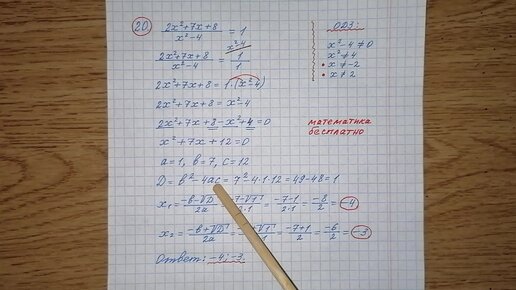 20) (2x²+7x+8)/(x²-4) = 1
(2x²+7x+8)/(x²-4) = 1/1 x²-4
2x²+7x+8 = 1·(x²-4)
2x²+7x+8 = x²-4
2x²+7x+8-x²+4=0
x²+7x+12=0
a=1, b=7, c=12
D = b²-4ac = 7²-4·1·12=49-48=1
x₁ = (-b-√D)/2a = 7-√1/2·1 = (-7-1)/(2·1) = -8/2 = -4
x₂ = (-b+√D)/2a = +√1 = (-7+1)/2 = -6/2 = -3
Ответ: -4; -3
ОДЗ:
x²-4≠0
x²≠4
• x≠-2
• x≠2
математика
бесплатно